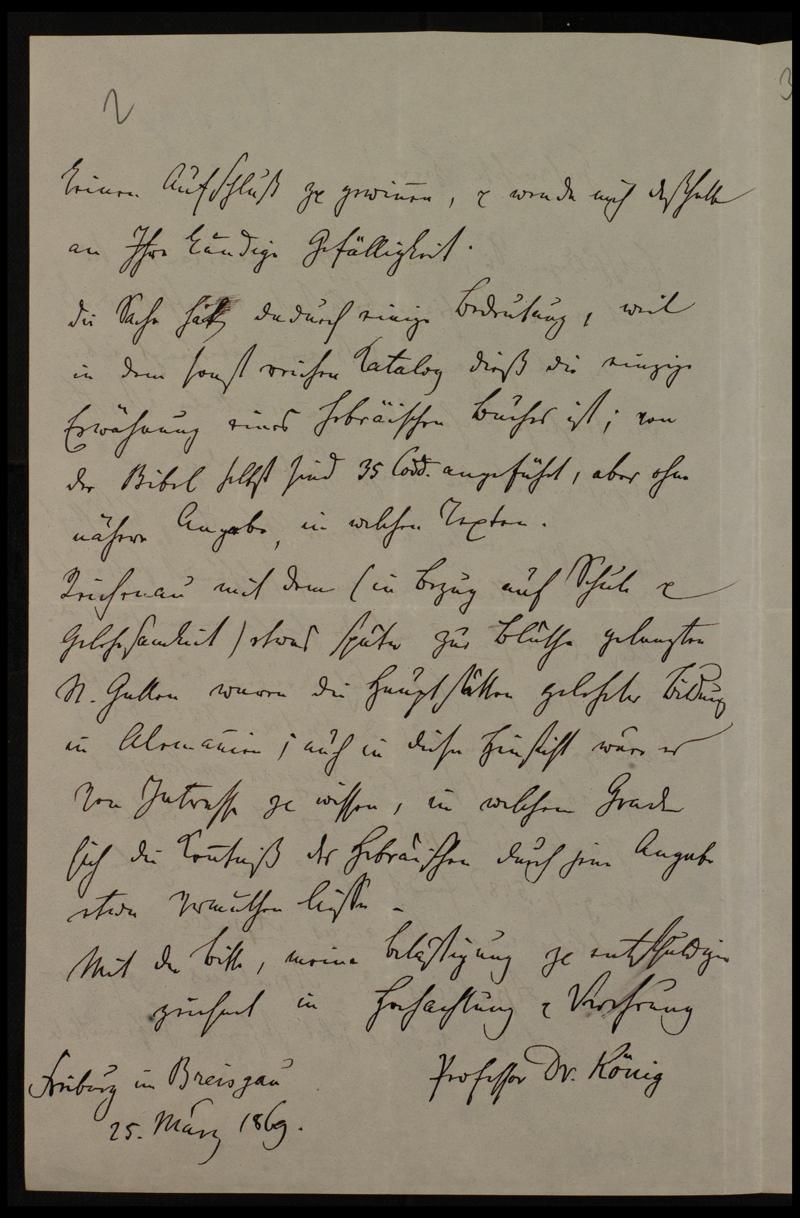 2
3
keinen Aufschluß zu gewinnen, & wende mich deßhalb
an Ihre kundige Gefälligkeit.
die Sache hat dadurch einige Bedeutung, weil
in dem sonst reichen Catalog dieß die einzige
Erwähnung eines hebräischen Buches ist; von
der Bibel selbst sind 35 Codd. angeführt, aber ohne
nähere Angabe, in welchen Texten.
Reichenau mit dem (in Bezug auf Schule &
Gelehrsamkeit) etwas später zur Blüthe gelangten
St. Gallen waren die Hauptstätten gelehrter Bildung
in Alemannien; auch in dieser Hinsicht wäre es
von Interesse zu wissen, in welchem Grade
sich die Kentniß des Hebräischen durch jene Angabe
etwa vermuthen ließe.
Mit der Bitte, meine Belästigung zu entschuldigen
zeichnet in Hochachtung & Verehrung
Professor Dr. König
Freiburg im Breisgau
25. März 1869.